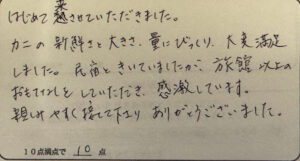 はじめて来させていただきました。
カニの新鮮さと大きさ、量にびっくり、大変満足
しました。民宿ときいていましたが、旅館以上の
おもてなしをしていただき、感激しています。
親しみやすく接して下さり ありがとうございました。
10点満点で 10 点